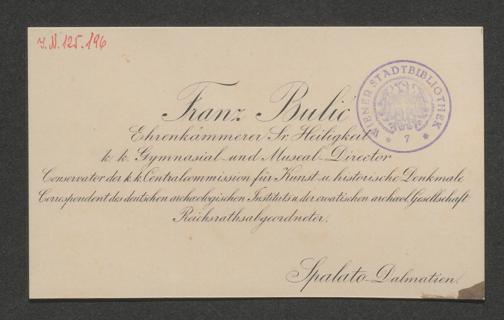 J.N. 125.196
WIENER STADTBIBLIOTHEK
* 7 *
Franz Bulić
Ehrenkämmerer Sr. Heiligkeit
k. k. Gymnasial- und Museal-Director
Conservator der k. k. Centralcommission für Kunst- u. historische Denkmale
Correspondent des deutschen archaeologischen Instituts u. der croatischen archaeol. Gesellschaft
Reichsrathsabgeordneter.
Spalato-Dalmatien.